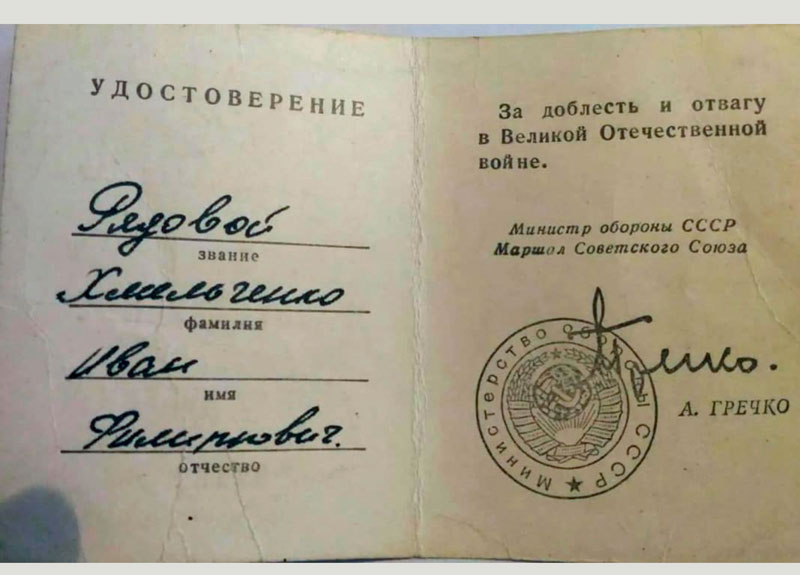 УДОСТОВЕРЕНИЕ
Рядовой
звание
Хмельченко
фамилия
Иван
имя
отчество
За доблесть и отвагу
в Великой Отечественной
войне.
Министр обороны СССР
Маршал Советского Союза
МИНИСТЕРСТВО ОБОРОНЫ СССР
А. ГРЕЧКО